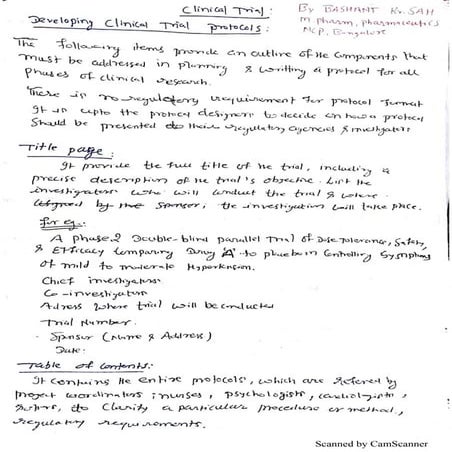 Clinical Trial:
By BASHANT Kr. SAH
M pharm, pharmaceutics
NCP, Bangalore
Developing Clinical Trial protocols:
The following items provide an outline of the components that
must be addressed in planning & writting a protocol for all
phases of clinical research.
There is no regulatory requirement for protocol format
It is upto the protocol designers to decide on how a protocol
Should be presented to their regulatory agencies & investigators
Title page:
It provide the full title of the trial, including a
precise description of the trial's objective. List the
investigators who will conduct the trial & where
by the sponsor, the investigation will take place.
for eg:
A phase 2 Double-blind parallel Trial of Dose Tolerance, Safety,
& Efficacy Comparing Drug 'A' to in Controlling Symptoms
of mild to moderate
Chief investigators
Co-investigators
Adress where trial will be conducted
Trial Number.
Sponsor (Name & Address)
Date:
Table of Contents:
It contains the entire protocols, which are refered by
project coordinators, nurses, psychologists, cardiologists,
to Clarify a particular procedure or method,
regulatory requirements.
Scanned by CamScanner